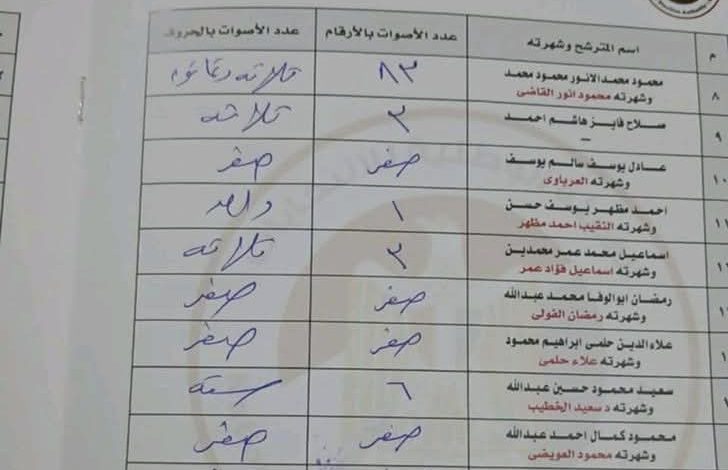 م اسم المترشح وشهرته عدد الأصوات بالأرقام عدد الأصوات بالحروف
٨ محمود محمد الانور محمود محمد ٨٣ ثلاثه وثمانون
وشهرته محمود انور القاضى
٩ صلاح فايز هاشم احمد ٣ ثلاثه
–
١٠ عادل يوسف سالم يوسف صفر صفر
وشهرته العرباوى
١١ احمد مظهر يوسف حسن ١ واحد
وشهرته النقيب احمد مظهر
١٢ اسماعيل محمد عمر محمدين ٣ ثلاثه
وشهرته اسماعيل فؤاد عمر
رمضان ابوالوفا محمد عبدالله صفر صفر
وشهرته رمضان الفولى
علاءالدين حلمى ابراهيم محمود صفر صفر
وشهرته علاء حلمى
سعيد محمود حسين عبدالله ٦ سته
وشهرته د سعيد الخطيب
محمود كمال احمد عبدالله صفر صفر
وشهرته محمود العويضى